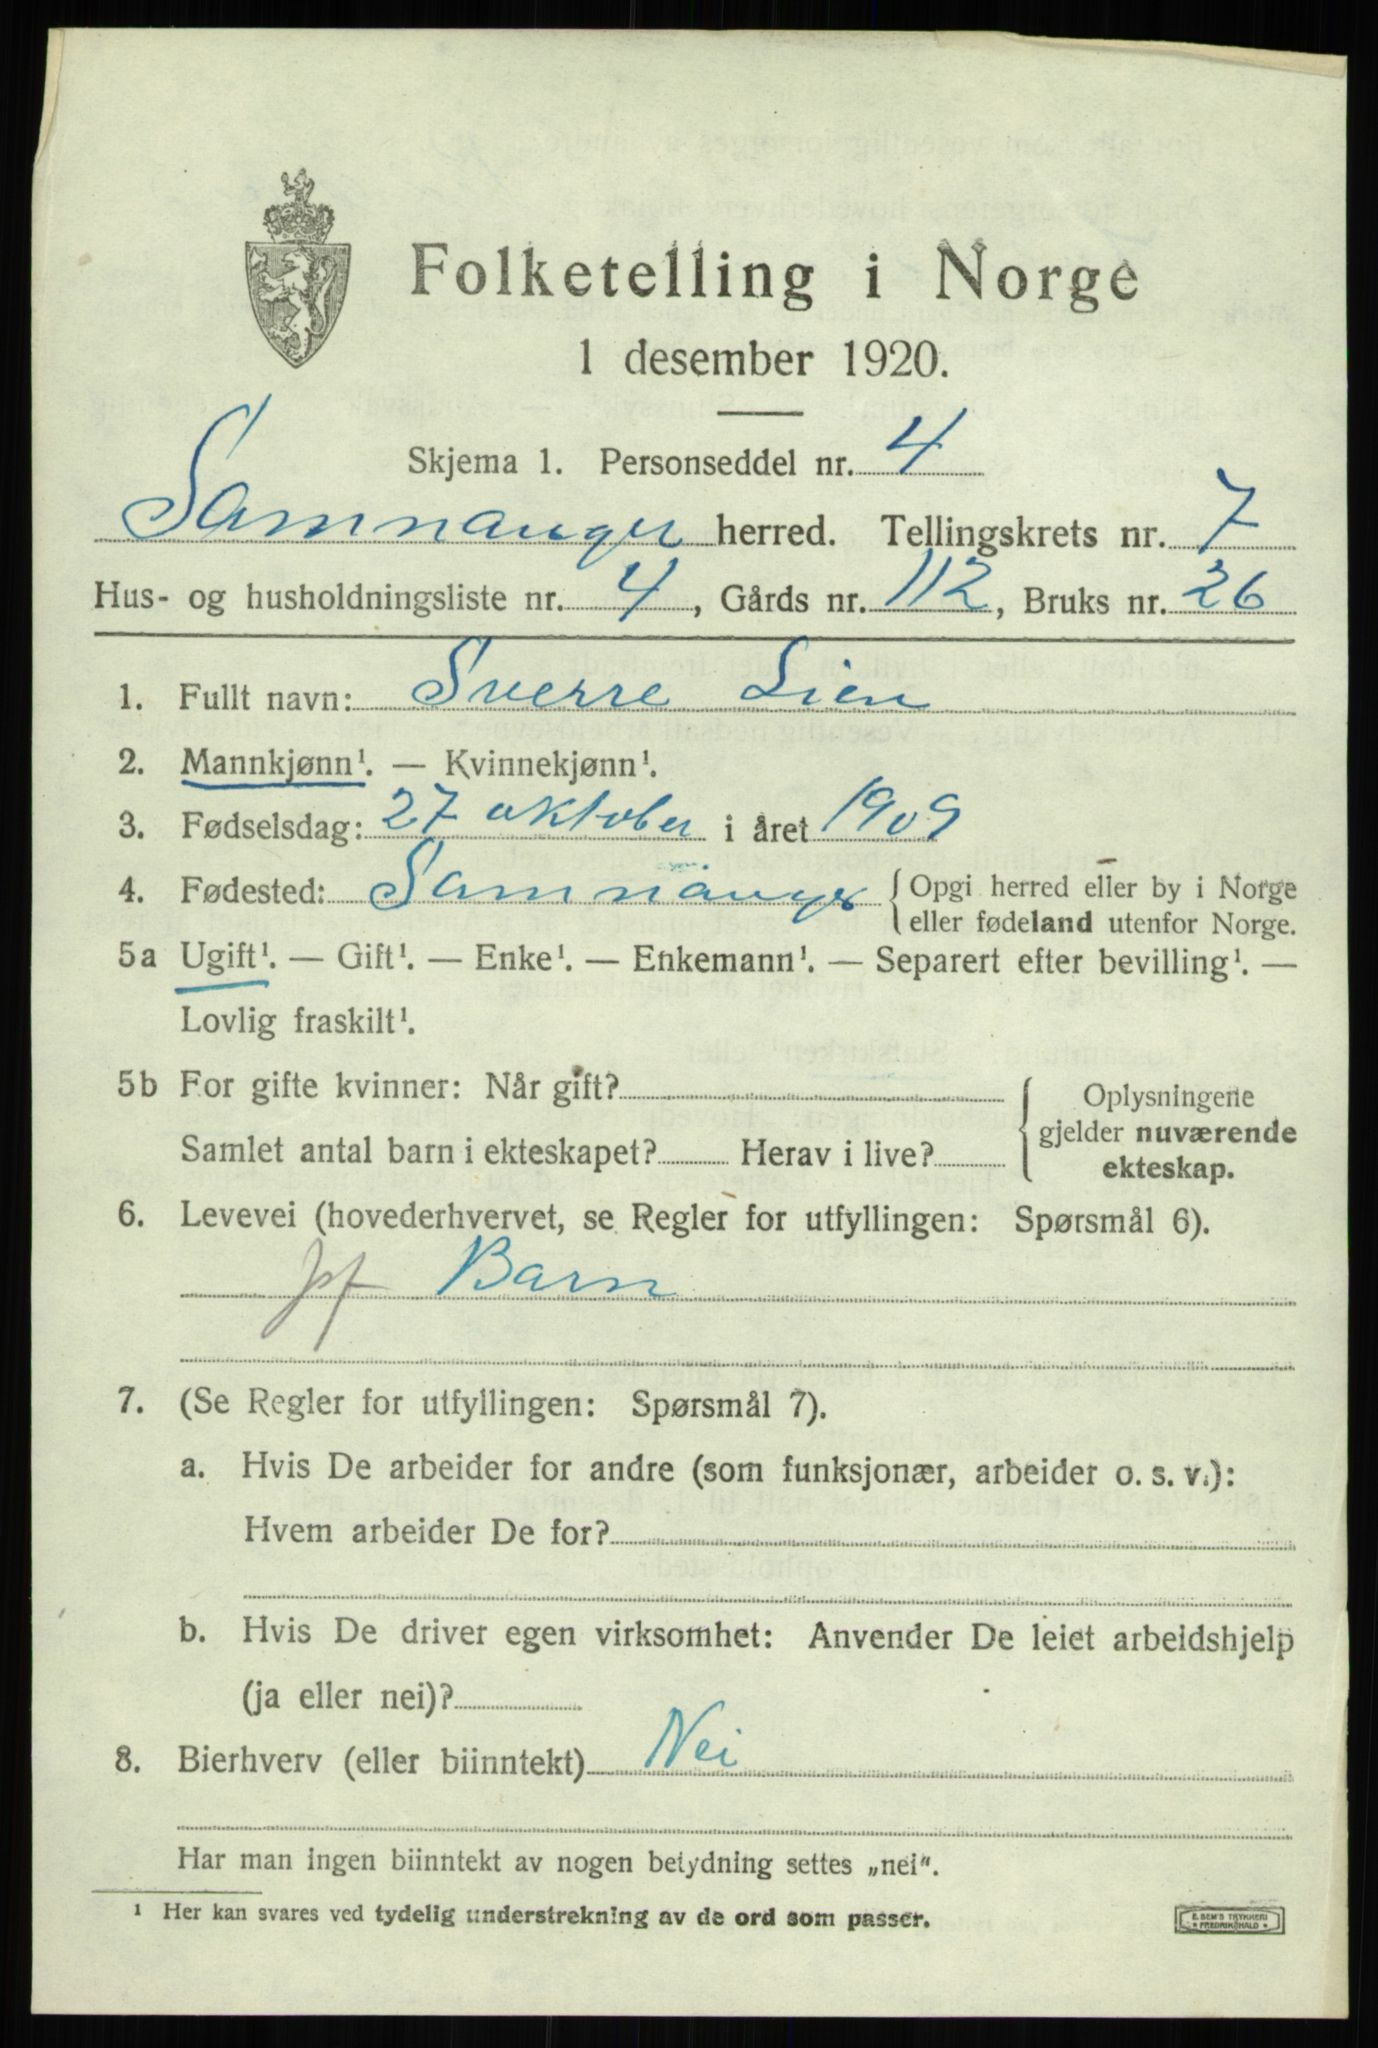 Folketelling i Norge
1 desember 1920.
Skjema 1. Personseddel nr. 4
Samnanger herred. Tellingskrets nr. 7
Hus- og husholdningsliste nr. 4, Gårds nr. 112, Bruks nr. 26
1. Fullt navn: Sverre Lien
2. Mannkjønn¹. — Kvinnekjønn¹.
3. Fødselsdag: 27 oktober i året 1909
4. Fødested: Samnanger { Opgi herred eller by i Norge
eller fødeland utenfor Norge.
5a Ugift¹. — Gift¹. — Enke¹. — Enkemann¹. — Separert efter bevilling¹. —
Lovlig fraskilt¹.
5b For gifte kvinner: Når gift?
Samlet antal barn i ekteskapet? Herav i live?
{ Oplysningene
gjelder nuværende
ekteskap.
6. Levevei (hovederhvervet, se Regler for utfyllingen: Spørsmål 6).
Barn
7. (Se Regler for utfyllingen: Spørsmål 7).
a. Hvis De arbeider for andre (som funksjonær, arbeider o. s. v.):
Hvem arbeider De for?
b. Hvis De driver egen virksomhet: Anvender De leiet arbeidshjelp
(ja eller nei)?
8. Bierhverv (eller biinntekt) Nei
Har man ingen biinntekt av nogen betydning settes „nei".
¹ Her kan svares ved tydelig understrekning av de ord som passer.
E. SEM'S TRYKKERI
* FREDRIKSHALD *